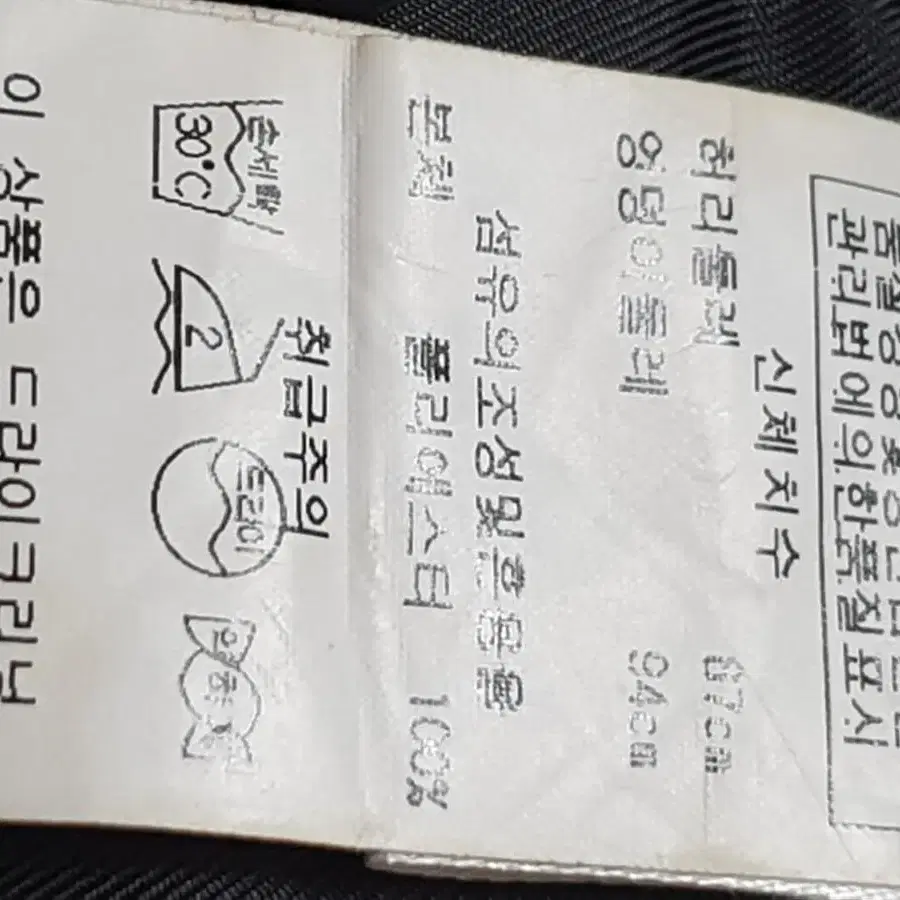 관리법에의한품질표시
신체치수
허리둘레 67cm
엉덩이둘레 94cm
섬유의조성및혼용율
본체 폴리에스터 100%
취급주의
손세탁
30°C
2
드라이
약하게
이 상품은 드라이크리닝